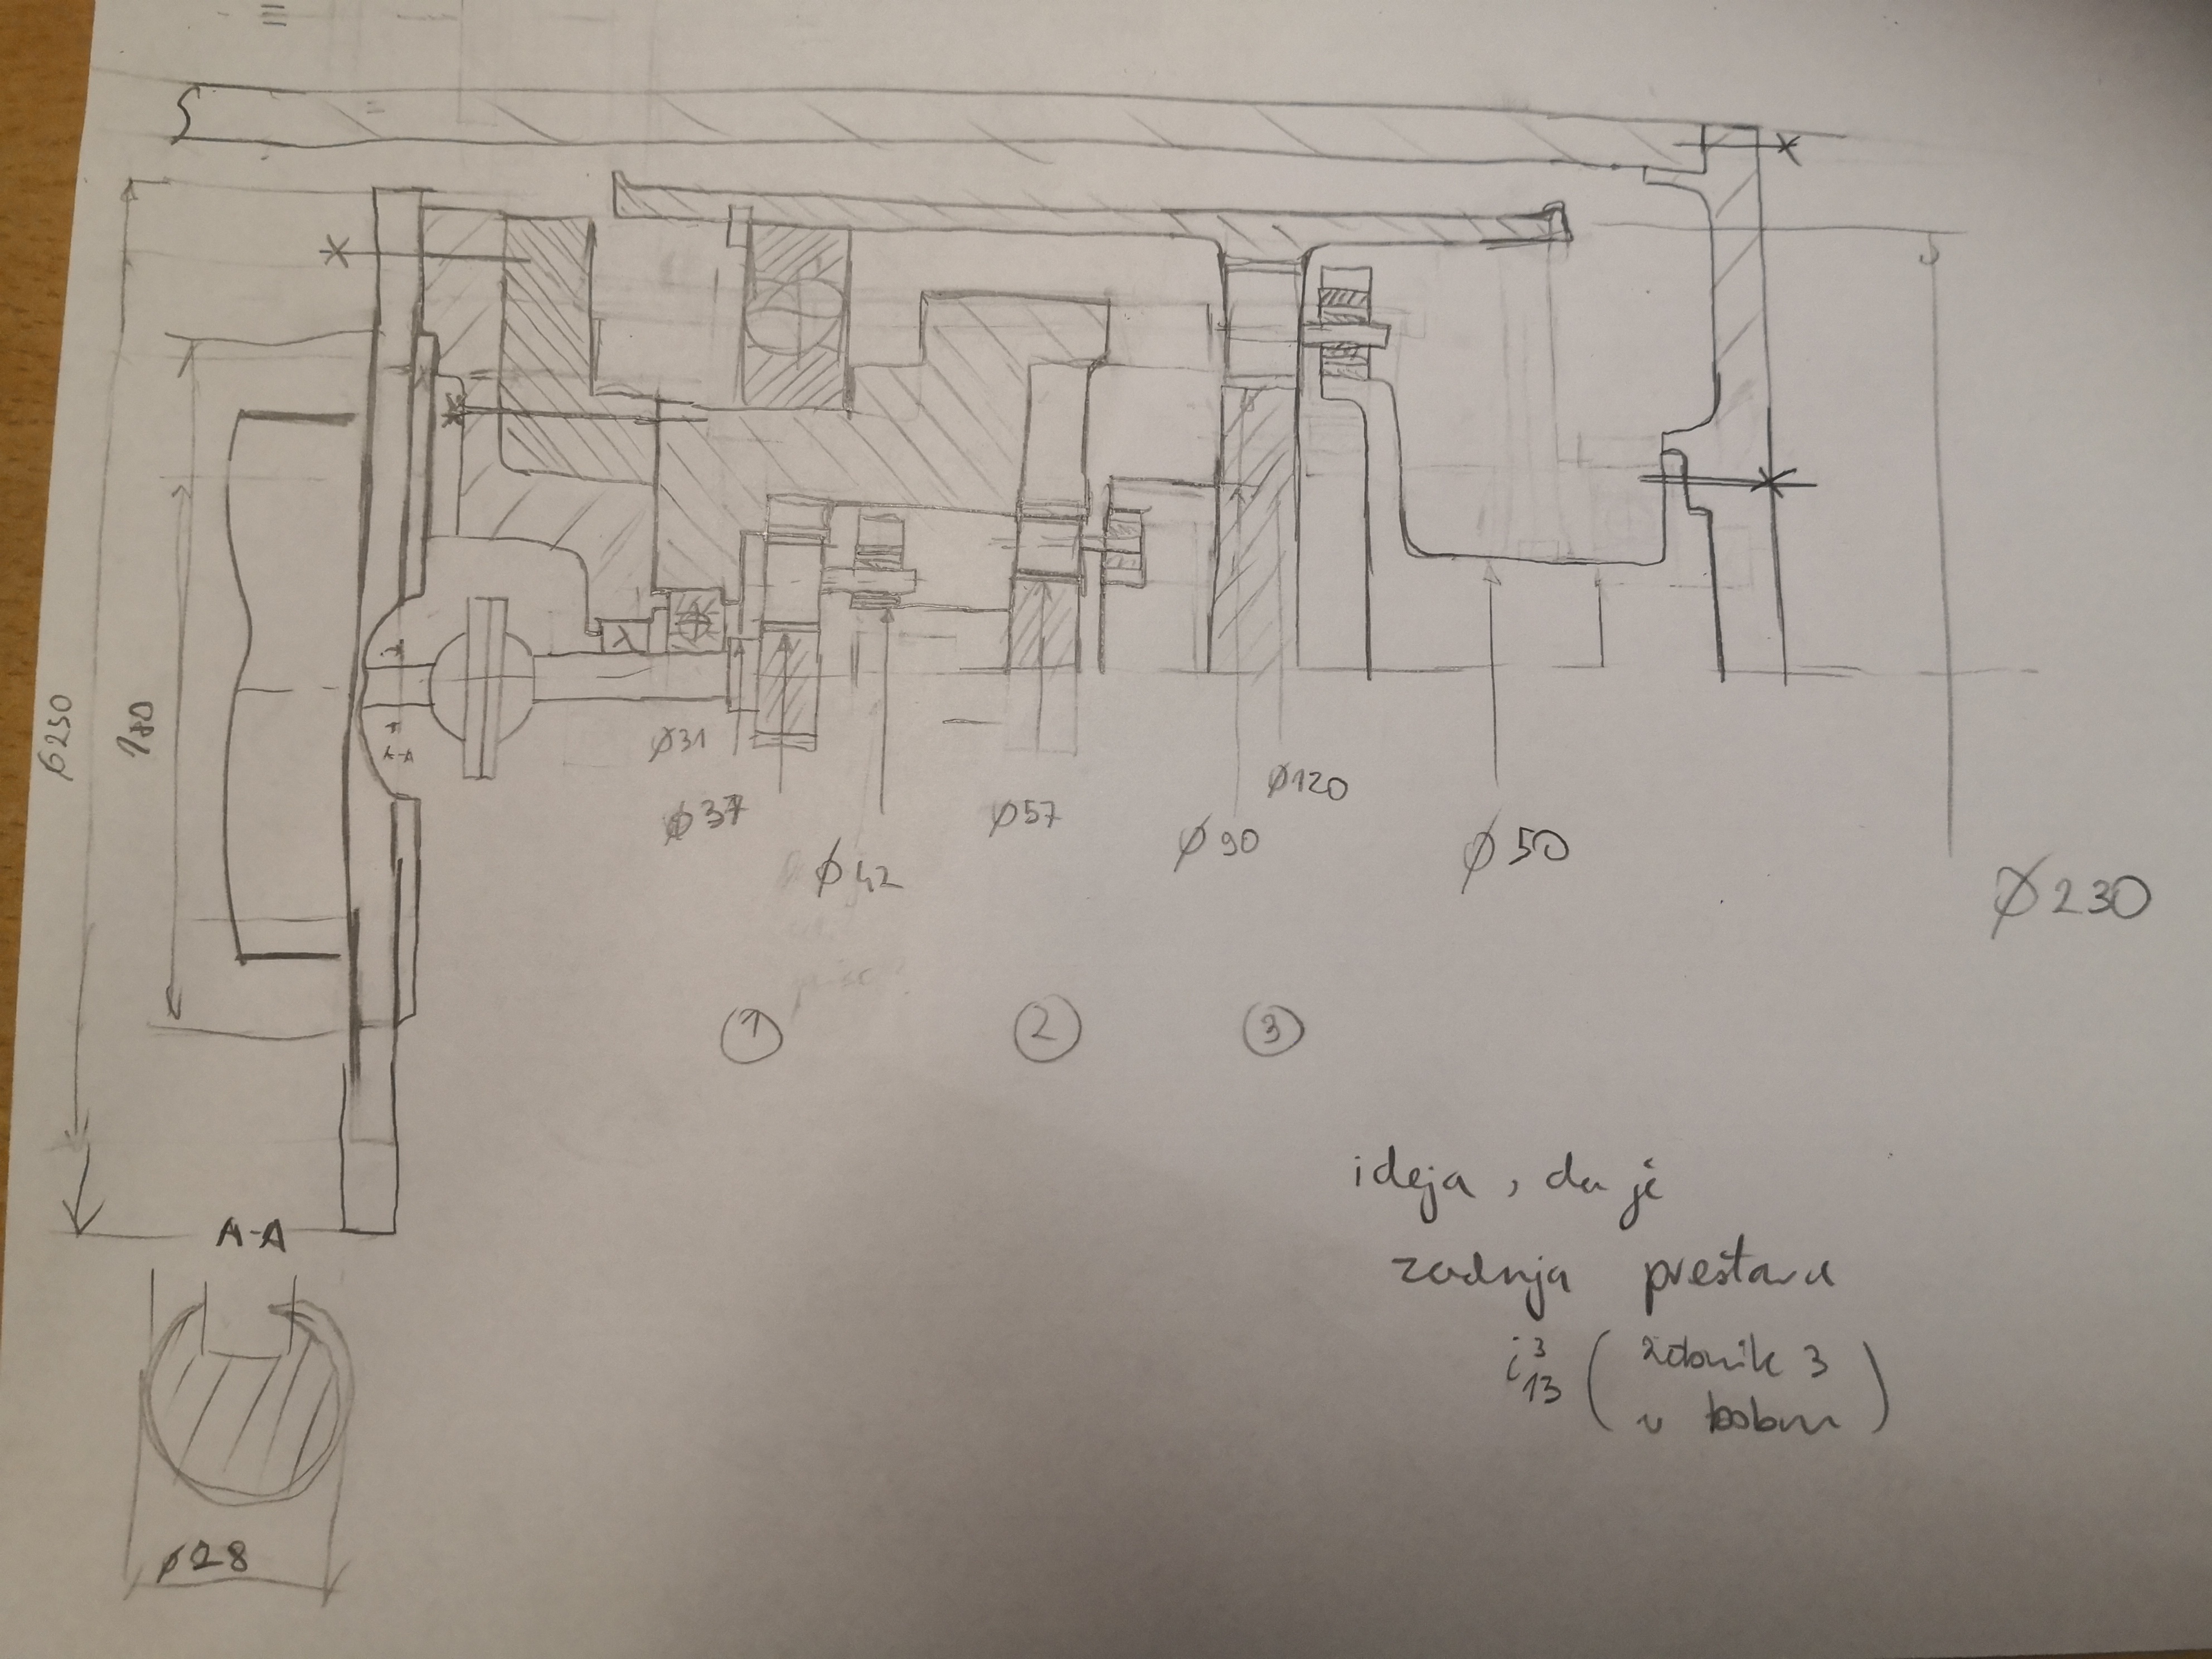 ø250
180
A-A
ø31
ø37
ø42
ø57
ø90
ø120
ø50
ø230
1
2
3
A-A
ø28
ideja, da je
zadnja prestava
i³₁₃ (zobnik 3
v bobnu)